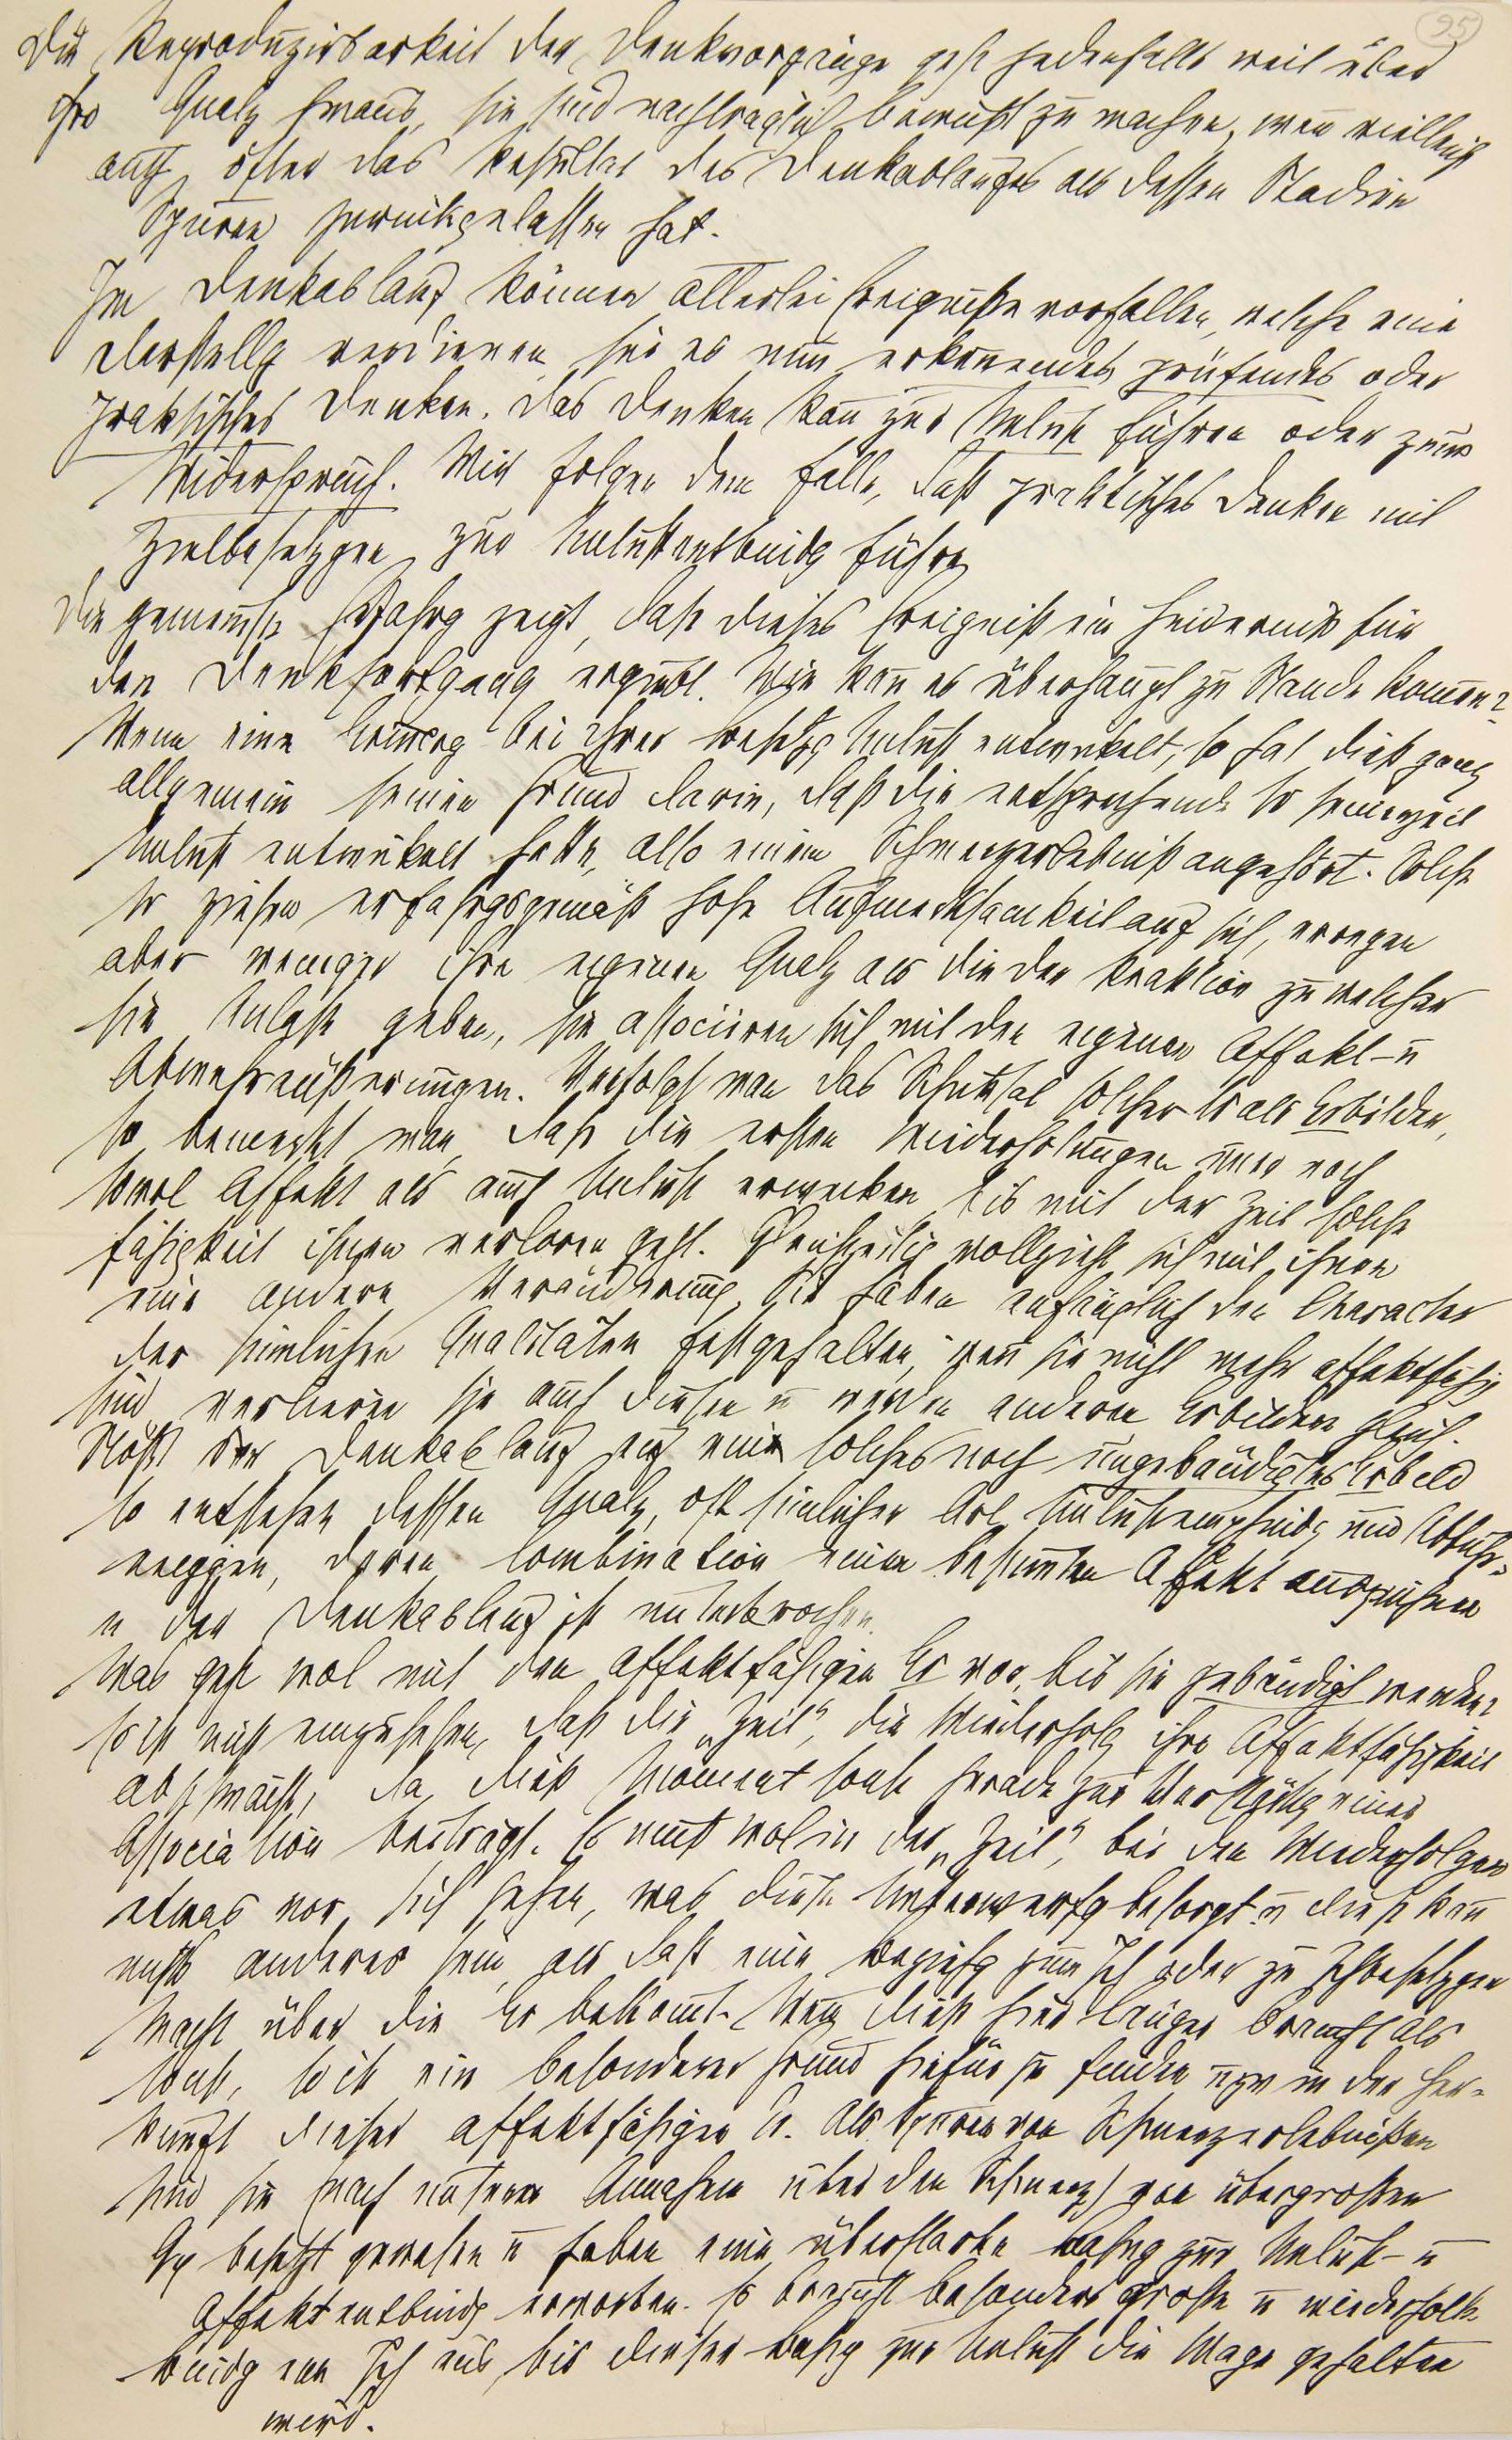 95
Die Reproduzirbarkeit der Denkvorgänge geht jedenfalls weit über
ihre Qualz hinaus, sie sind nachträglich bewußt zu machen, wenn vielleicht
auch öfter das Resultat des Denkablaufes als dessen Stadien
Spuren zurückgelassen hat.
Im Denkablauf können allerlei Ereigniße vorfallen, welche eine
Darstellg verdienen, sei es nun erkennendes, prüfendes oder
praktisches Denken. Das Denken kañ zur Unlust führen oder zum
Widerspruch. Wir folgen dem Falle, daß praktisches Denken mit
Zielbesetzgen zur Unlustentbindg führe
Die gemeinste Erfahrg zeigt, daß dieses Ereigniß ein Hinderniß für
den Denkfortgang ergiebt. Wie kañ es überhaupt zu Stande kom̄en?
Wenn eine Erinnerg bei ihrer Besetzg Unlust entwickelt, so hat dieß ganz
allgemein seinen Grund darin, daß die entsprechende W seinerzeit
Unlust entwickelt hatte, also einem Schmerzerlebniß angehört. Solche
W ziehen erfahrgsgemäß hohe Aufmerksamkeit auf sich, erregen
aber weniger ihre eigenen Qualz als die der Reaktion zu welcher
sie Anlaß geben, sie associiren sich mit den eigenen Affekt- u
Abwehräußerungen. Verfolgt man das Schicksal solcher W als Erbilder,
so bemerkt man, daß die ersten Wiederholungen im̄er noch
sowol Affekt als auch Unlust erwecken, bis mit der Zeit solche
Fähigkeit ihnen verloren geht. Gleichzeitig vollzieht sich mit ihnen
eine andere Veränderung. Sie haben anfänglich den Character
der sinnlichen Qualitäten festgehalten; weñ sie nicht mehr affektfähig
sind, verlieren sie auch diesen u werden anderen Erbildern gleich.
Stößt der Denkablauf auf ein solches noch ungebändigtes Erbild
so entstehen dessen Qualz, oft sinnlicher Art, Unlustempfindg und Abfuhr-
neiggen, deren Combination einen bestim̄ten Affekt auszeichnen
u der Denkablauf ist unterbrochen.
Was geht wol mit den affektfähigen Er vor, bis sie gebändigt werden?
Es ist nicht einzusehen, daß die „Zeit“, die Wiederholg ihre Affektfähigkeit
abschwächt, da dieß Moment sonst gerade zur Verstärkg einer
Association beiträgt. Es muß wol in der „Zeit“, bei den Wiederholgen
etwas vor sich gehen, was diese Unterwerfg besorgt u dieß kañ
nichts anderes sein, als daß eine Beziehg zum Ich oder zu Ichbesetzgen
Macht über die Er bekom̄t. Weñ dieß hier länger braucht als
sonst, so ist ein besonderer Grund hiefür zu finden uzw in der Her-
kunft dieser affektfähigen Er. Als Spuren von Schmerzerlebnißen
sind sie (nach unserer Annahme über den Schmerz) von übergroßem
Qη besetzt gewesen u haben eine überstarke Bahng zur Unlust- u
Affektentbindg erworben. Es braucht besonders große u wiederholte
Bindg vom Ich aus, bis dieser Bahng zur Unlust die Wage gehalten
wird.